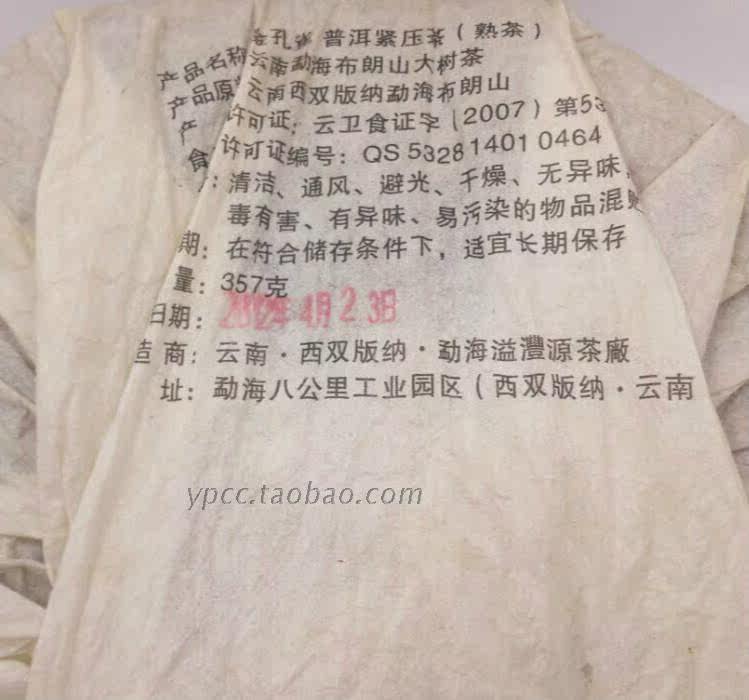 产品名称 孔雀 普洱紧压茶(熟茶)
产品原 云南勐海布朗山大树茶
产 云南西双版纳勐海布朗山
食 许可证:云卫食证字(2007)第53
许可证编号:QS 5328 1401 0464
:清洁、通风、避光、干燥、无异味
毒有害、有异味、易污染的物品混
期:在符合储存条件下,适宜长期保存
量:357克
日期:2012年4月23日
造 商:云南·西双版纳·勐海溢灃源茶廠
址:勐海八公里工业园区(西双版纳·云南
ypcc.taobao.com